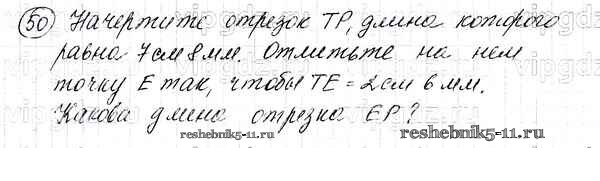 50 Начертите отрезок TP, длина которого
равна 7 см 8 мм. Отметьте на нем
точку E так, чтобы TE = 2 см 6 мм.
Какова длина отрезка EP?
reshebnik5-11.ru
reshebnik5-11.ru